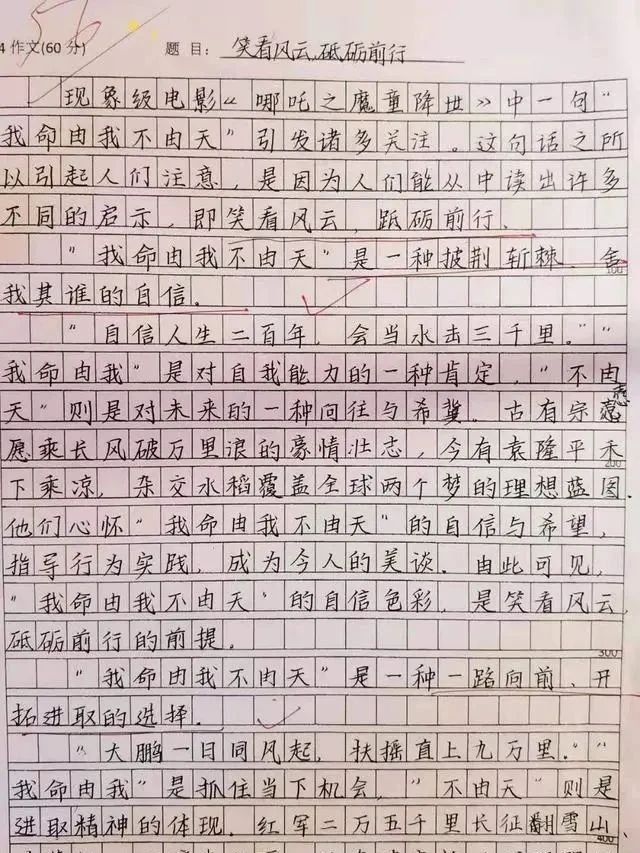 56
4 作文(60分) 题目：笑看风云，砥砺前行
现象级电影《哪吒之魔童降世》中一句“
我命由我不由天”引发诸多关注。这句话之所
以引起人们注意，是因为人们能从中读出许多
不同的启示，即笑看风云，砥砺前行。
“我命由我不由天”是一种披荆斩棘、舍
100
我其谁的自信。
“自信人生二百年，会当水击三千里。”“
我命由我”是对自我能力的一种肯定，“不由
天”则是对未来的一种向往与希冀。古有宗悫
愿乘长风破万里浪的豪情壮志，今有袁隆平禾
200
下乘凉，杂交水稻覆盖全球两个梦的理想蓝图。
他们心怀“我命由我不由天”的自信与希望，
指导行为实践，成为今人的美谈。由此可见，
“我命由我不由天”的自信色彩，是笑看风云，
砥砺前行的前提。
300
“我命由我不由天”是一种一路向前、开
拓进取的选择。
“大鹏一日同风起，扶摇直上九万里。”“
我命由我”是抓住当下机会，“不由天”则是
进取精神的体现。红军二万五千里长征翻雪山、
400